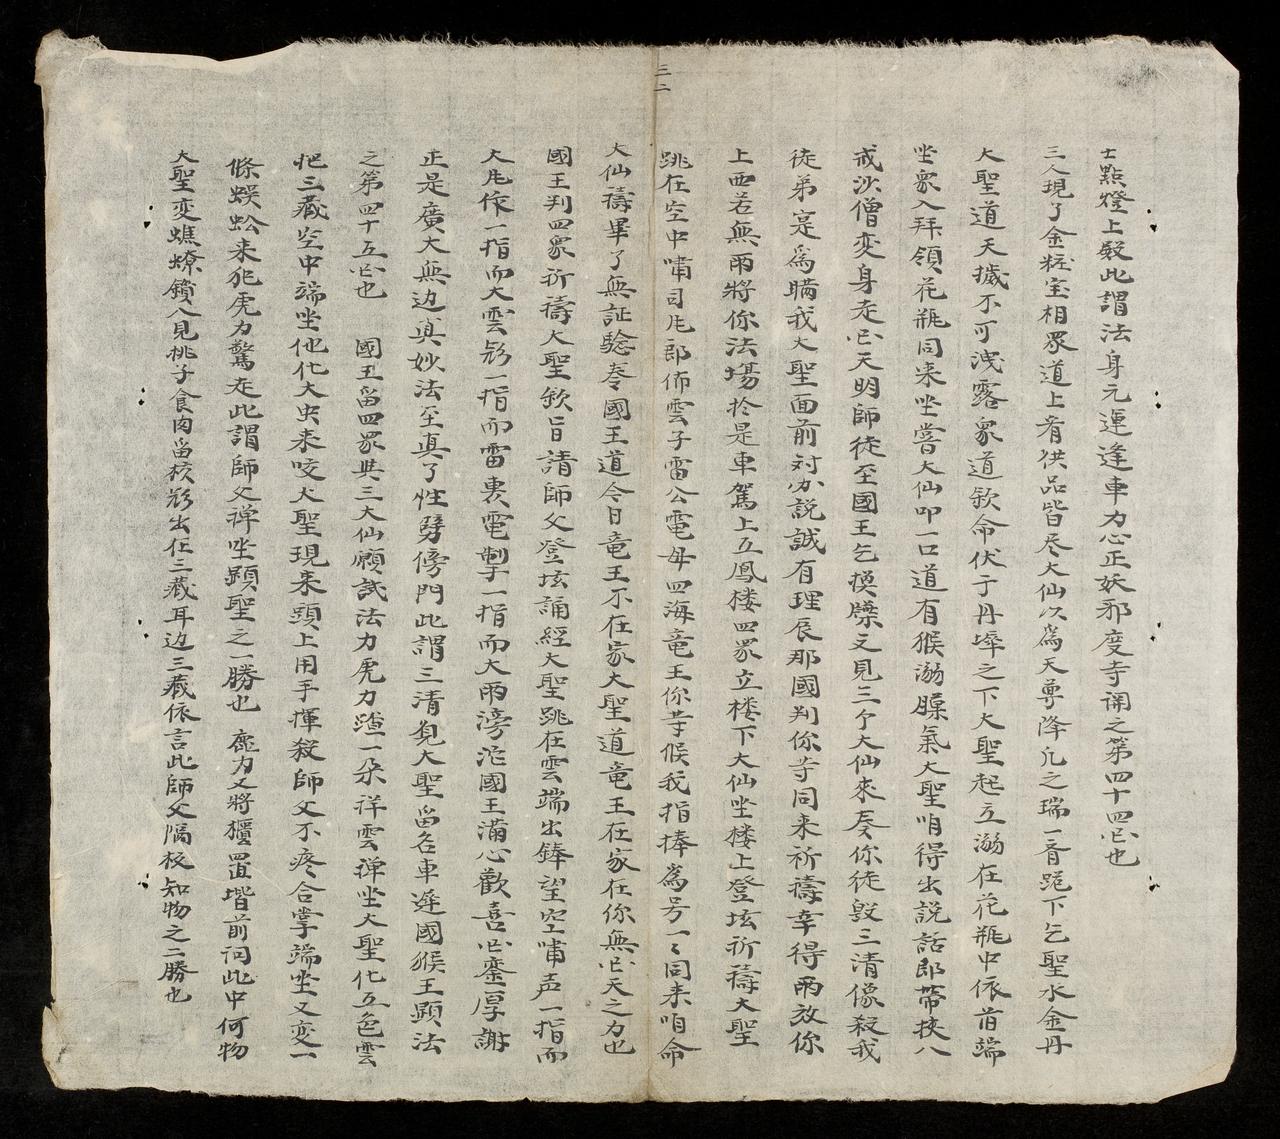 士點燈上殿此謂法身元運逢車力心正妖邪度寺関之第四十四亡也
三人現了金粧宝相眾道上肴供品皆尽大仙以為天尊降凡之瑞一斉跪下乞聖水金丹
大聖道天機不可洩露眾道欽命伏于丹墀之下大聖起立溺在花瓶中依旨端
坐眾入拜領花瓶同来坐嘗大仙叩一口道有猴溺臊氣大聖咱得出説話郎帯挾八
戒沙僧变身走亡天明師徒至國王乞摸牒又見三个大仙來奏你徒毀三清像殺我
徒弟寔為瞞我大聖面前対办説誠有理辰那國判你等同来祈禱幸得雨放你
上西若無雨將你法場於是車駕上五鳳楼四眾立楼下大仙坐楼上登坛祈禱大聖
三二
跳在空中嘯司凡郎佈雲子雷公電母四海竜王你等候我指捧為号一々同来咱命
大仙禱畢了無証驗奏國王道今日竜王不在家大聖道竜王在家在你無亡天之力也
國王判四眾祈禱大聖欽旨請師父登坛誦經大聖跳在雲端出鋒望空嘯声一指而
大凡作一指而大雲彩一指而雷轟電掣一指而大雨滂沱國王滿心歡喜亡鑾厚謝
正是廣大無边真妙法至真了性劈傍門此謂三清覌大聖畄名車遲國猴王顕法
之第四十五亡也　國王畄四眾與三大仙願試法力虎力踏一朵祥雲禅坐大聖化五色雲
把三藏空中端坐他化大虫来咬大聖現来頭上用手揮殺師父不疼合掌端坐又変一
條蜈蚣来犯虎力驚走此謂師父禅坐顕聖之一勝也　鹿力又將櫃置堦前问此中何物
大聖变蟭蟟鑽入見桃子食肉畄核彩出在三藏耳边三藏依言此師父隔板知物之二勝也